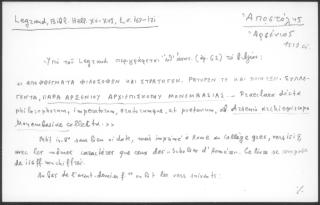 Legrand, Bibl. Hell. XV-XVI, I, σ. 169-171
Ἀποστόλης
Ἀρσένιος
Ὑπὸ τοῦ Legrand περιγράφεται ὑπ' ἀριθ. (ἀρ. 62) τὸ βιβλίον:
« ΑΠΟΦΘΕΓΜΑΤΑ ΦΙΛΟΣΟΦΩΝ ΚΑΙ ΣΤΡΑΤΗΓΩΝ, ΡΗΤΟΡΩΝ ΤΕ ΚΑΙ ΠΟΙΗΤΩΝ ΣΥΛΛΕ-
ΓΕΝΤΑ, ΠΑΡΑ ΑΡΣΕΝΙΟΥ ΑΡΧΙΕΠΙΣΚΟΠΟΥ ΜΟΝΕΜΒΑΣΙΑΣ. — Praeclara dicta
philosophorum, imperatorum, oratorumque, et poetarum, ab Arsenio archiepiscopo
Monembasiae collecta. »
Petit in-8° sans lieu ni date, mais imprimé à Rome au Collège grec, vers 1519,
avec les mêmes caractères que ceux des Scholies d'Homère. Le livre se compose
de
Au fos de l'avant-dernier f° on lit les vers suivants: